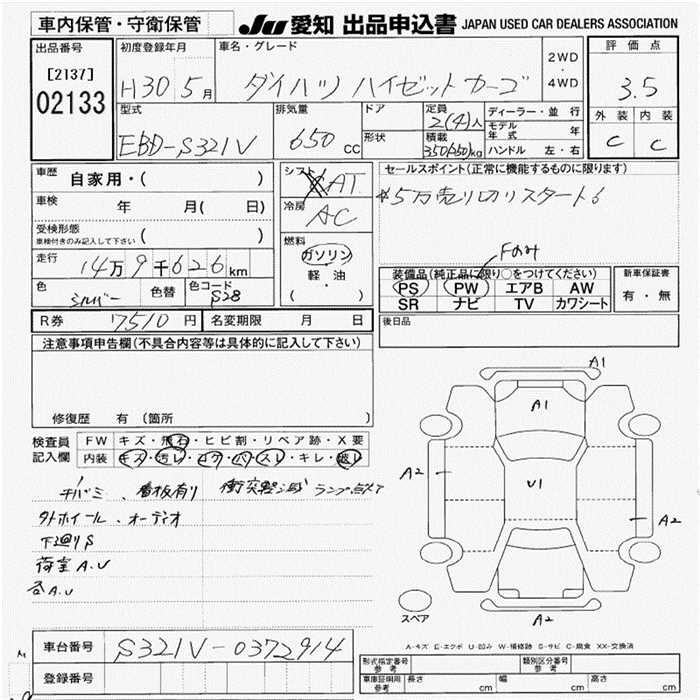 車内保管・守衛保管
JU 愛知 出品申込書 JAPAN USED CAR DEALERS ASSOCIATION
出品番号 初度登録年月 車名・グレード 2WD ・ 4WD 評価点
[2137] 02133
H30 5月 ダイハツ ハイゼットカーゴ 3.5
型式 EBD-S321V
排気量 650 cc
ドア
形状
定員 2(4)人
積載 350(250)kg
ディーラー・並 行
モデル年式 年
ハンドル 左・右
外装 C 内装 C
車歴 自家用・( )
車検 年 月( 日)
受検形態 車検付きのみ記入して下さい ( )
走行 14万9千626km
色 シルバー 色替 色コード S28
シフト AT
冷房 AC
燃料 ガソリン
軽・油
( )
セールスポイント(正常に機能するものに限ります)
5万売り切りスタート
Fのみ
装備品(純正品に限り○をつけてください)
PS PW エアB AW
SR ナビ TV カワシート
新車保証書
有・無
R券 7510円 名変期限 月 日
後日品
注意事項申告欄(不具合内容等は具体的に記入して下さい)
修復歴 有 (箇所 )
検査員記入欄
FW キズ・飛石・ヒビ割・リペア跡・X要
内装 キズ・汚レ・コゲ・ハスレ・キレ・破レ
看板有り 衝突軽減 ランプ点灯
外ホイール.オーディオ
下廻りS
荷室A.U
各A.U
A1
A1
A2
U1
A2
A2
スペア
A-キズ E-エクボ U-凹み W-補修跡 S-サビ C-腐食 XX-交換済
車台番号 S321V-0372914
登録番号
形式指定番号 参考 類別区分番号 参考
車庫証明用 参考 長さ cm 幅 cm 高さ cm